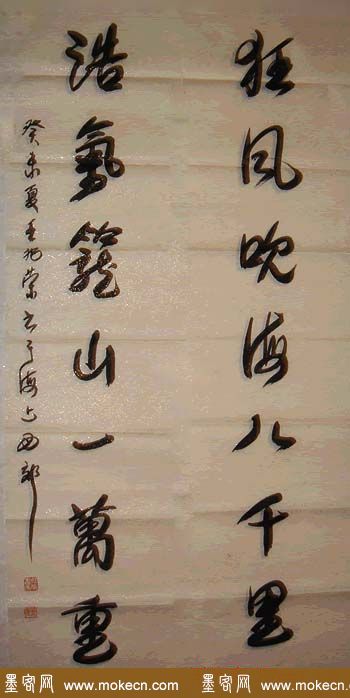 狂风吹海八千里
浩氣籠山一萬重
癸未夏王兆荣书于海上西郊
墨客网 www.mokecn.com 墨客网 www.mokecn.com